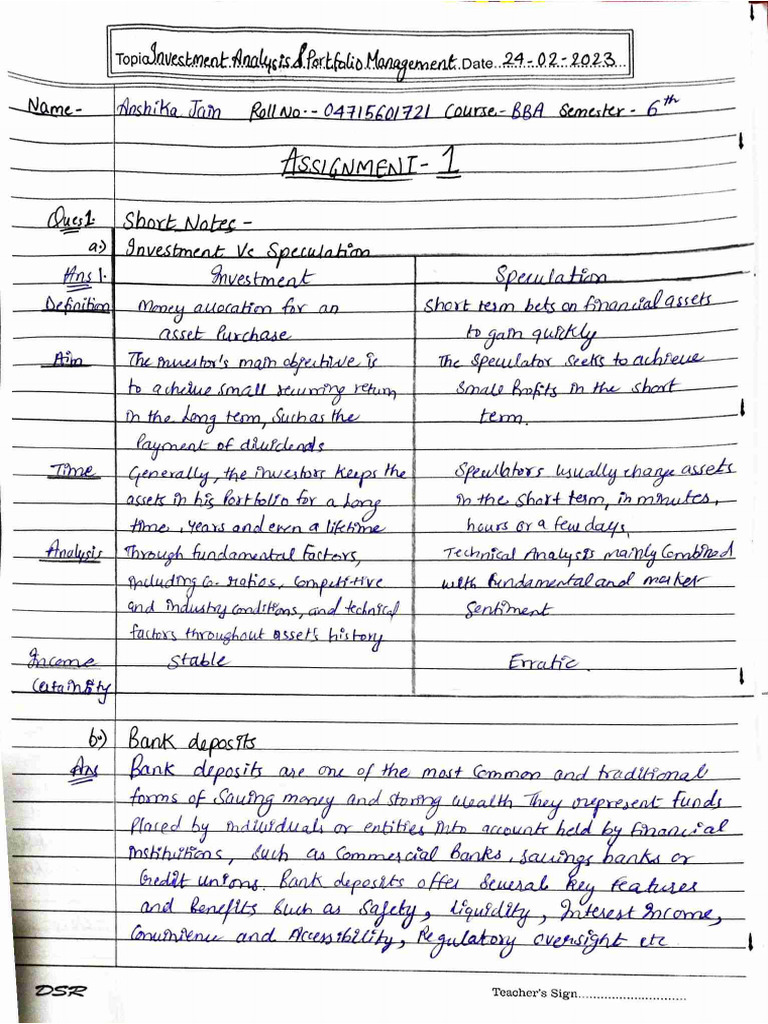 Topic Investment Analysis & Portfolio Management. Date..24-02-2023...
Name- Anshika Jain Roll No:- 04715601721 Course- BBA Semester- 6th
ASSIGNMENT- 1
Ques1. Short Notes -
a.) Investment Vs Speculation
Ans 1. Investment Speculation
Definition Money allocation for an Short term bets on financial assets
asset Purchase to gain quickly
Aim The investor's main objective is The Speculator seeks to achieve
to acheive small recurring return Small Profits in the short
in the Long term, Such as the term.
Payment of dividends
Time Generally, the investors keeps the Speculators usually change assets
assets in his Portfolio for a Long in the short term, in minutes,
time, years and even a lifetime hours or a few days.
Analysis Through fundamental factors, Technical Analysis mainly Combined
including Co. ratios, Competitive with fundamental and market
and industry conditions, and technical Sentiment
factors throughout asset's history
Income Stable Erratic.
Certainity
b.) Bank deposits
Ans Bank deposits are one of the most Common and traditional
forms of Saving money and storing wealth They represent Funds
Placed by individuals or entities into accounts held by financial
institutions, Such as Commercial Banks, savings banks or
Credit unions. Bank deposits offer Several key features
and Benefits Such as Safety, Liquidity, Interest Income,
Convinience and Accessibility, Regulatory oversight etc
DSR Teacher's Sign.............................